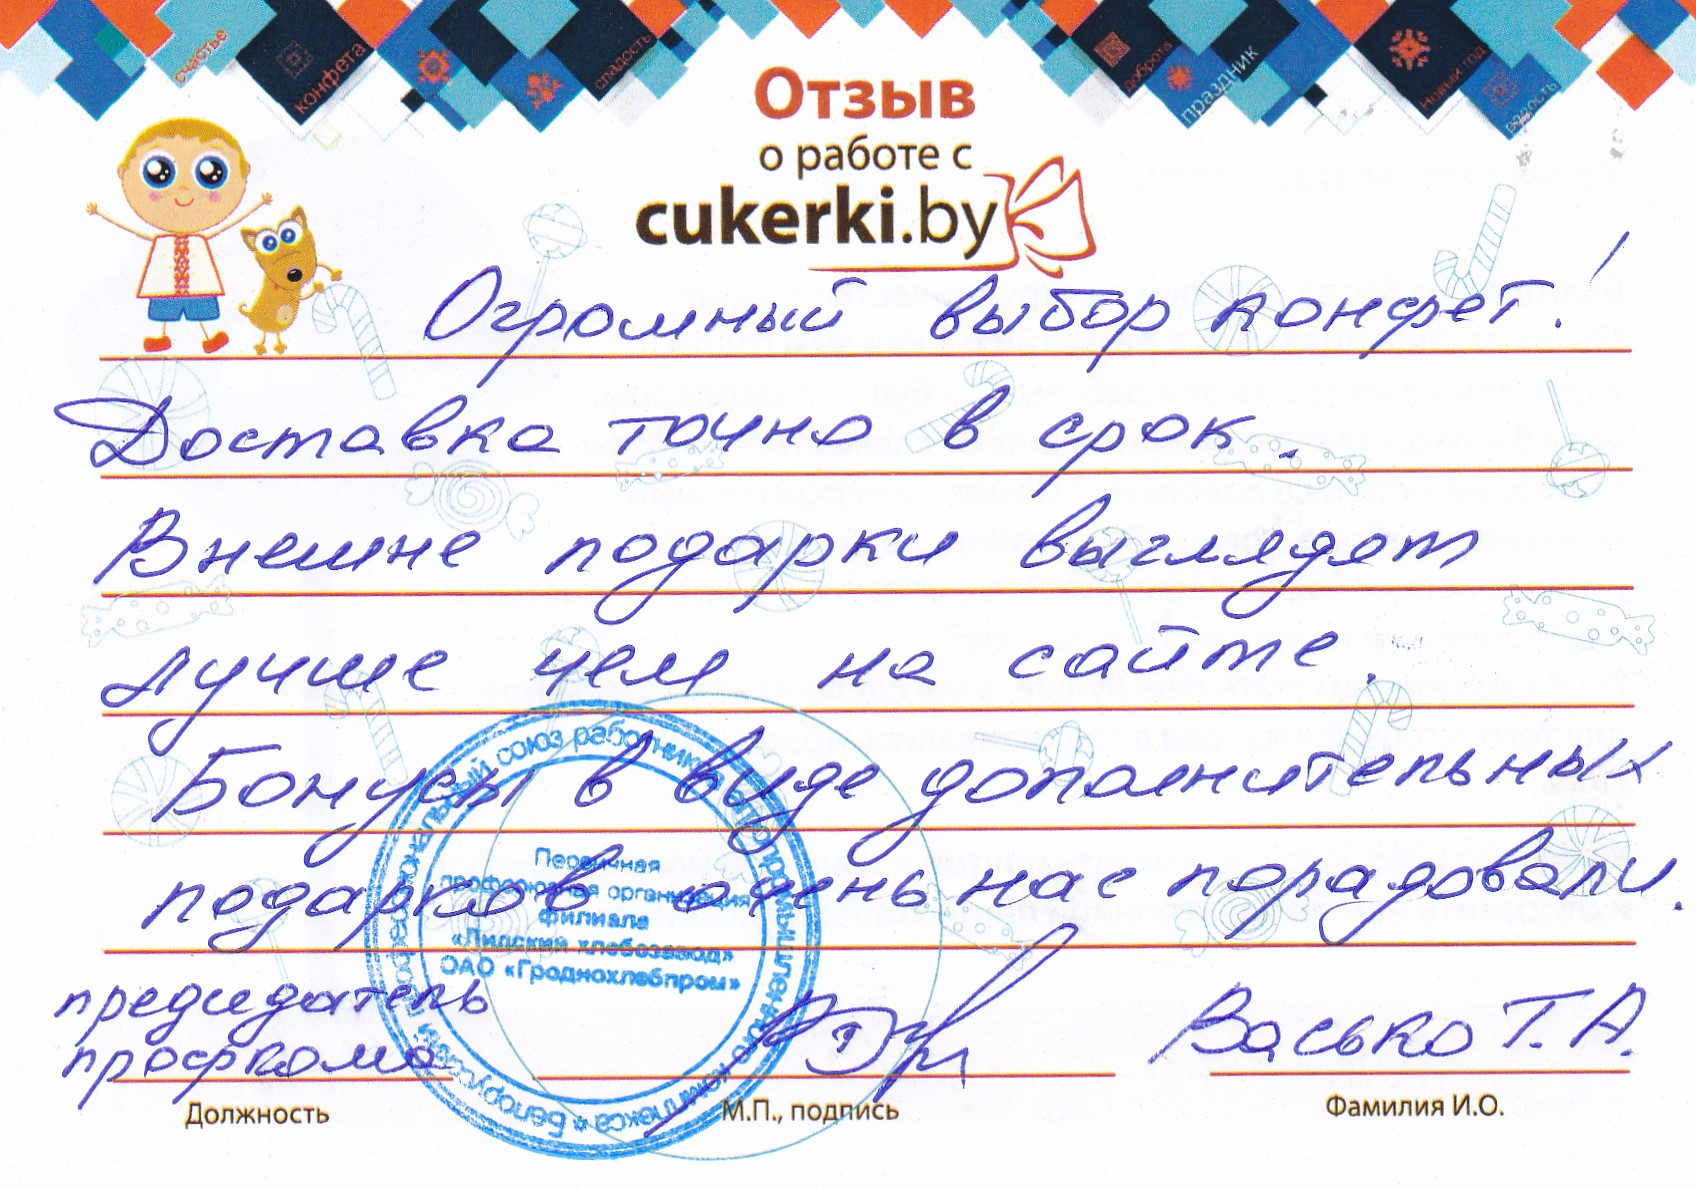 счастье
конфета
сладость
доброта
праздник
Новый год
радость
Отзыв
о работе с
cukerki.by
Огромный выбор конфет!
Доставка точно в срок.
Внешне подарки выглядят
лучше чем на сайте.
Бонусы в виде дополнительных
подарков очень нас порадовали.
председатель
профкома
Васько Т.А.
Должность
М.П., подпись
Фамилия И.О.
Белорусский профессиональный союз работников агропромышленного комплекса
Первичная
профсоюзная организация
филиала
«Лидский хлебозавод»
ОАО «Гроднохлебпром»